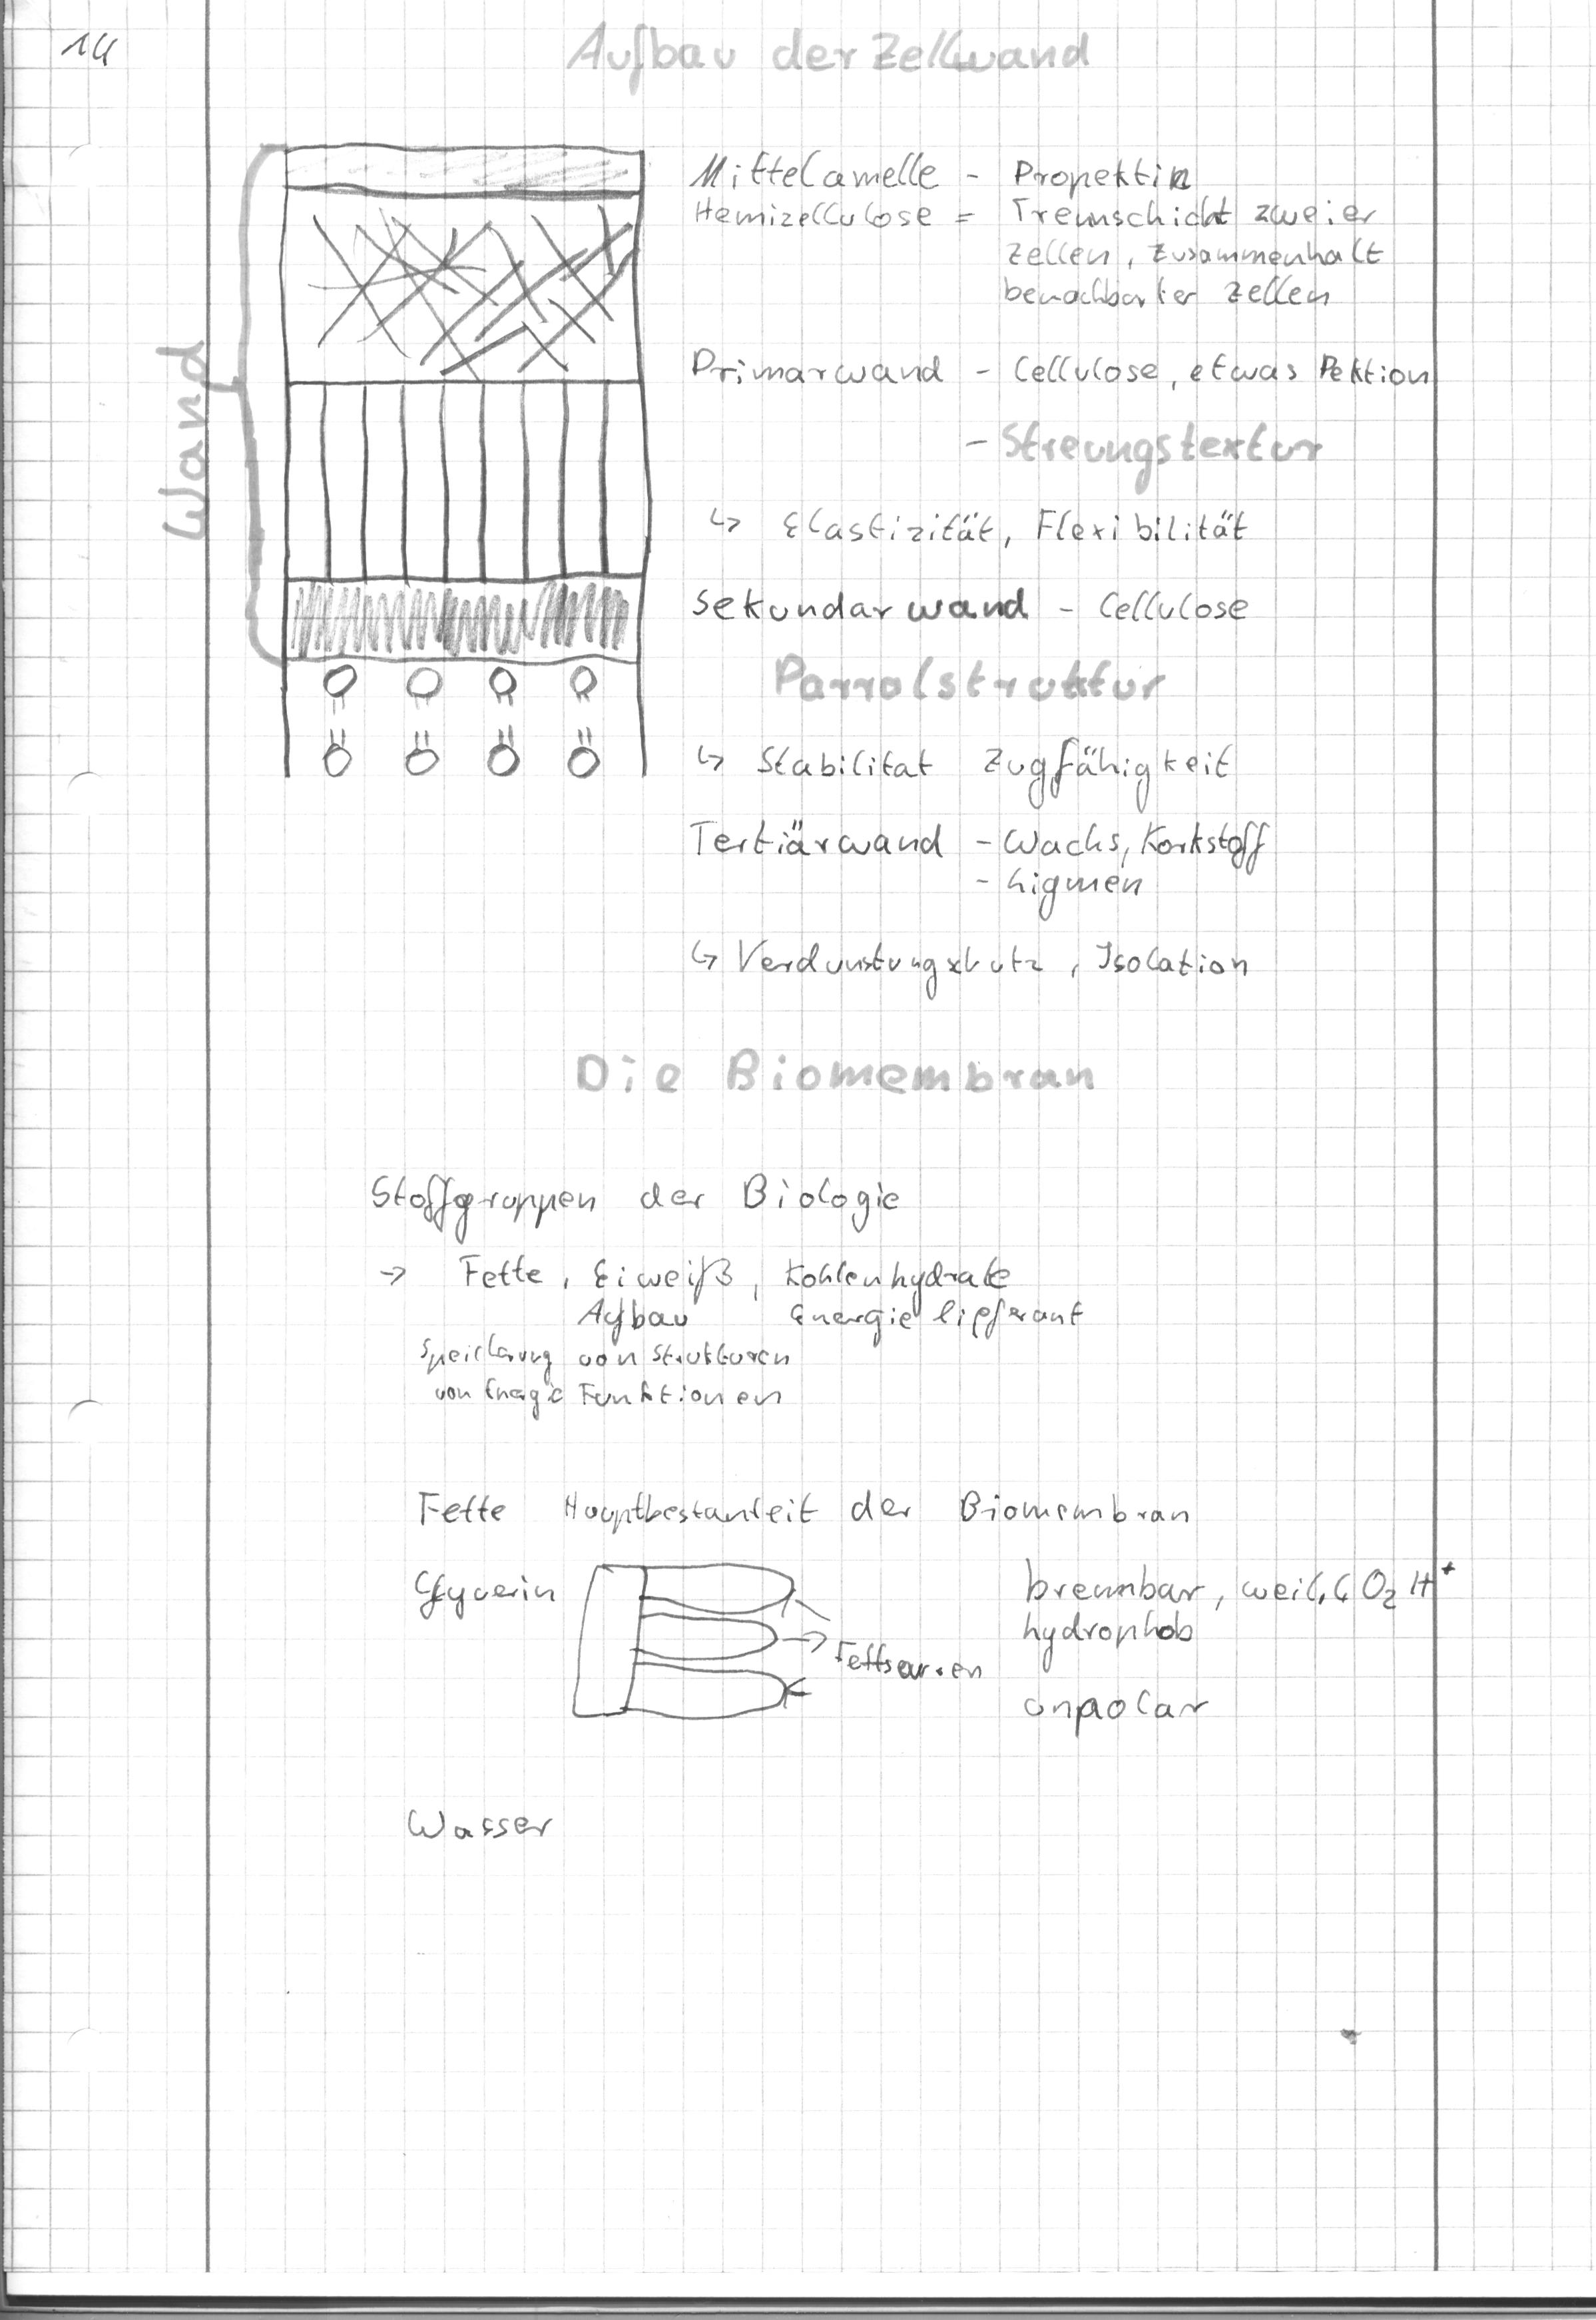 14
Aufbau der Zellwand
Wand
Mittelamelle - Propektin
Hemizellulose = Trennschicht zweier
Zellen, Zusammenhalt
benachbarter Zellen
Primarwand - Cellulose, etwas Pektion
- Streungstextur
↳ Elastizität, Flexibilität
Sekundarwand - Cellulose
Parralstruktur
↳ Stabilitat Zugfähigkeit
Tertiärwand - Wachs, Korkstoff
- Lignen
↳ Verdunstungschutz, Isolation
Die Biomembran
Stoffgruppen der Biologie
→ Fette, Eiweiß, Kohlenhydrate
Aufbau Energie lieferant
Speicherung von Strukturen
von Energie Funktionen
Fette Hauptbestanteit der Biomembran
Glycerin brennbar, weil, C O2 H+
hydrophob
Fettsäuren
unpolar
Wasser